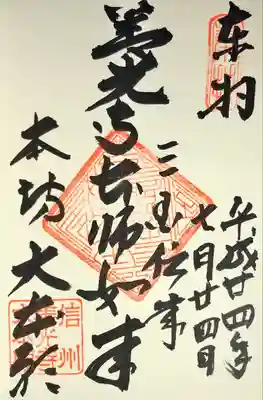 奉拝
平成廿四年
七月廿四日
三国伝来
善光寺本師如来
本坊 大本願
信州
善光寺